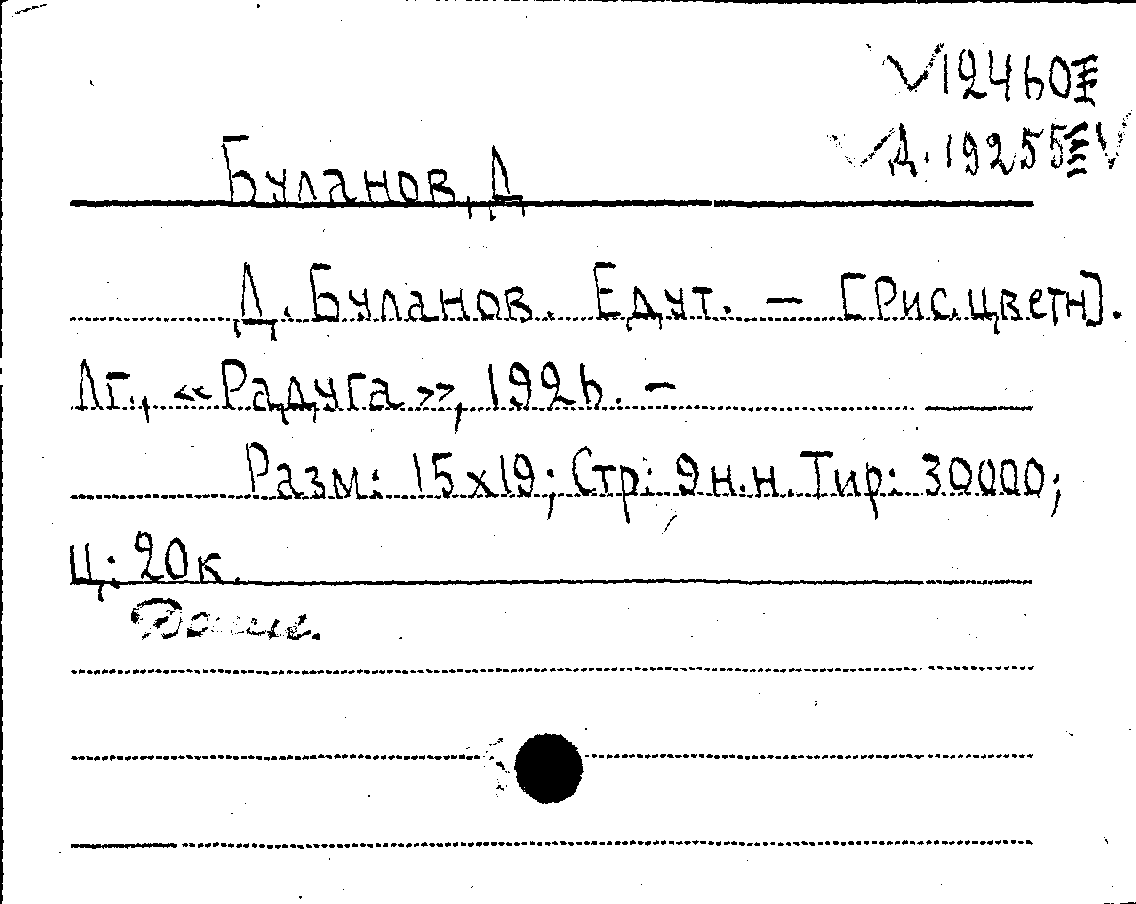 12460
Д. 19255
Буланов, Д
Д. Буланов. Едут. — [Рис. цветн].
Лг., «Радуга», 1926. —
Разм: 15х19; Стр: 9 н.н. Тир: 30000;
Ц: 20к.